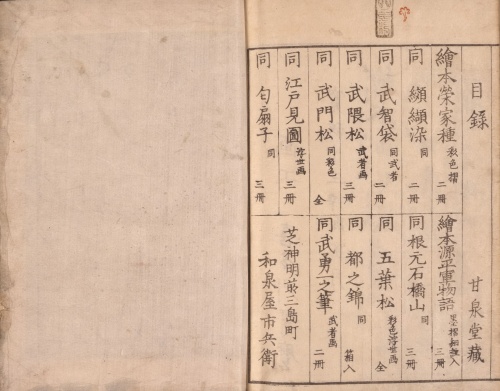 目録　甘泉堂藏
繪本榮家種　彩色摺　二冊
同　纐纈染　同　二冊
同　武智袋　同武者　二冊
同　武隈松　武者画　三冊
同　武門松　同彩色　全
同　江戸見圖　浮世画　三冊
同　匂扇子　同　三冊
繪本源平軍物語　墨摺　入　三冊
同　根元石橋山　同　三冊
同　五葉松　彩色浮世画　全
同　都之錦　同　箱入
同　武勇一之筆　武者画　二冊
芝神明前三島町
和泉屋市兵衛